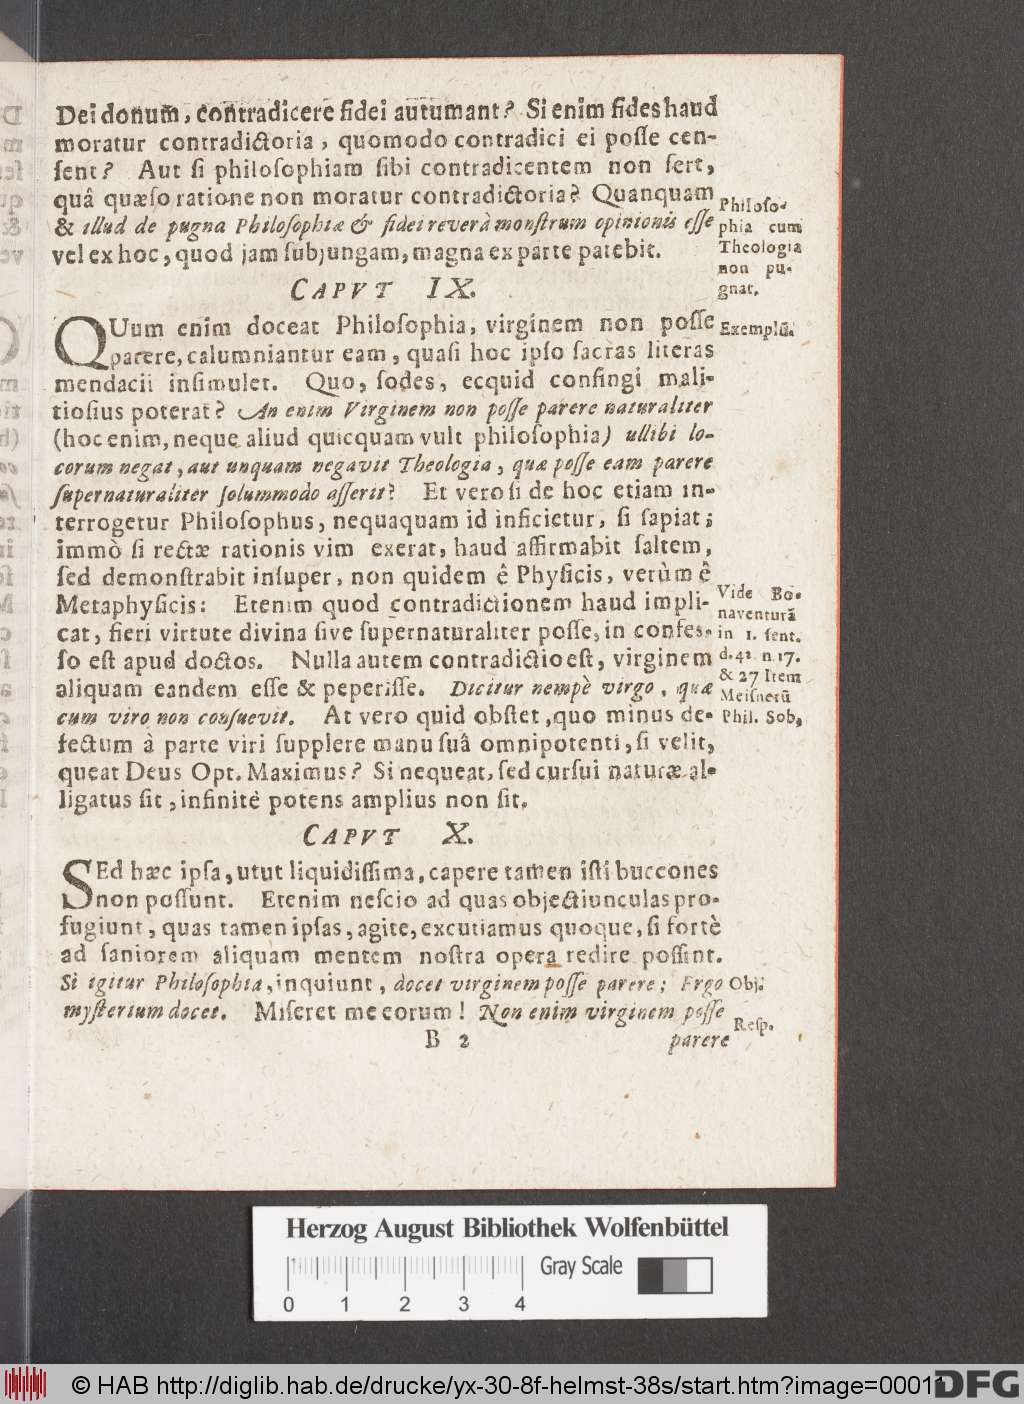 Dei donum, contradicere fidei autumant? Si enim fides haud
moratur contradictoria, quomodo contradici ei posse cen-
sent? Aut si philosophiam sibi contradicentem non fert,
quâ quæso ratione non moratur contradictoria? Quanquam
& illud de pugna Philosophiæ & fidei reverà monstrum opinionis esse
vel ex hoc, quod jam subjungam, magna ex parte patebit.
Philoso-
phia cum
Theologia
non pu-
gnat.
CAPVT IX.
QUum enim doceat Philosophia, virginem non posse
parere, calumniantur eam, quasi hoc ipso sacras literas
mendacii insimulet. Quo, sodes, ecquid confingi mali-
tiosius poterat? An enim Virginem non posse parere naturaliter
(hoc enim, neque aliud quicquam vult philosophia) ullibi lo-
corum negat, aut unquam negavit Theologia, quæ posse eam parere
supernaturaliter solummodo asserit? Et vero si de hoc etiam in-
terrogetur Philosophus, nequaquam id inficietur, si sapiat;
immò si rectæ rationis vim exerat, haud affirmabit saltem,
sed demonstrabit insuper, non quidem ê Physicis, verùm ê
Metaphysicis: Etenim quod contradictionem haud impli-
cat, fieri virtute divina sive supernaturaliter posse, in confes-
so est apud doctos. Nulla autem contradictio est, virginem
aliquam eandem esse & peperisse. Dicitur nempè virgo, quæ
cum viro non consuevit. At vero quid obstet, quo minus de-
fectum à parte viri supplere manu suâ omnipotenti, si velit,
queat Deus Opt. Maximus? Si nequeat, sed cursui naturæ al-
ligatus sit, infinitè potens amplius non sit.
Exemplū.
Vide Bo-
naventurā
in 1. sent.
d. 42. n. 17.
& 27 Item
Meisnerū
Phil. Sob.
CAPVT X.
SEd hæc ipsa, utut liquidissima, capere tamen isti buccones
non possunt. Etenim nescio ad quas objectiunculas pro-
fugiunt, quas tamen ipsas, agite, excutiamus quoque, si fortè
ad saniorem aliquam mentem nostra opera redire possint.
Si igitur Philosophia, inquiunt, docet virginem posse parere; Ergo
mysterium docet. Miseret me eorum! Non enim virginem posse
Obj.
Resp.
B 2
parere
Herzog August Bibliothek Wolfenbüttel
Gray Scale
0 1 2 3 4
© HAB http://diglib.hab.de/drucke/yx-30-8f-helmst-38s/start.htm?image=00011
DFG